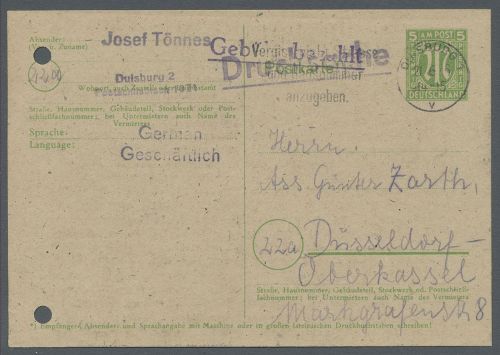 Absender:
(Vor- u. Zuname)
Josef Tönnes
Duisburg 2
Wohnort, auch Zustell- oder Leitpostamt
Straße, Hausnummer, Gebäudeteil, Stockwerk oder Post-
schließfachnummer; bei Untermietern auch Name des
Vermieters
Sprache:
Language:
German
Geschäftlich
Gebühr bezahlt
Drucksache
Postkarte
anzugeben.
5 AM POST 5
DEUTSCHLAND
DUISBURG
Herrn
Ass. Günter Zarth,
22a
Düsseldorf-
Oberkassel
Straße, Hausnummer, Gebäudeteil, Stockwerk od. Postschließ-
fachnummer; bei Untermietern auch Name des Vermieters
Markgrafenstr 8
*) Empfänger-, Absender- und Sprachangabe mit Maschine oder in großen lateinischen Druckbuchstaben schreiben!